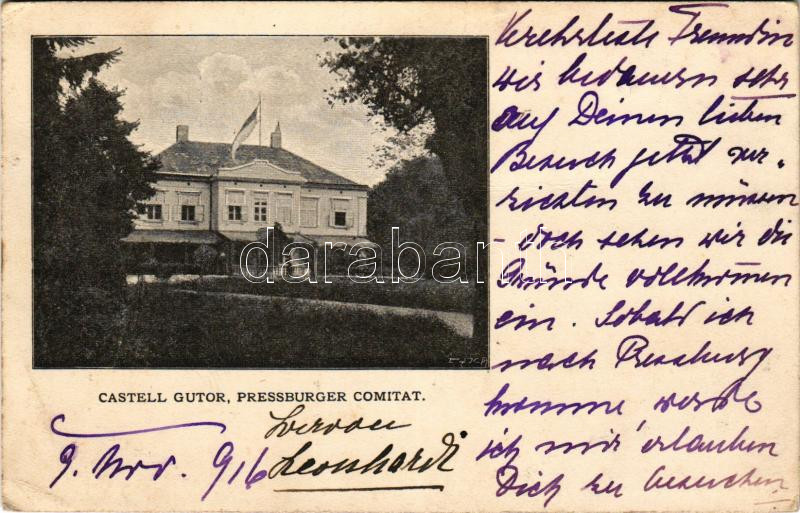 Verehrteste Freundin
wir bedauern sehr
auf Deinen lieben
Besuch jetzt ver-
zichten zu müssen
- doch sehen wir die
Gründe vollkommen
ein. Sobald ich
nach Pressburg
komme werde
ich mir erlauben
Dich zu besuchen
darabanth
CASTELL GUTOR, PRESSBURGER COMITAT.
9. Nov. 916
Leonhardi